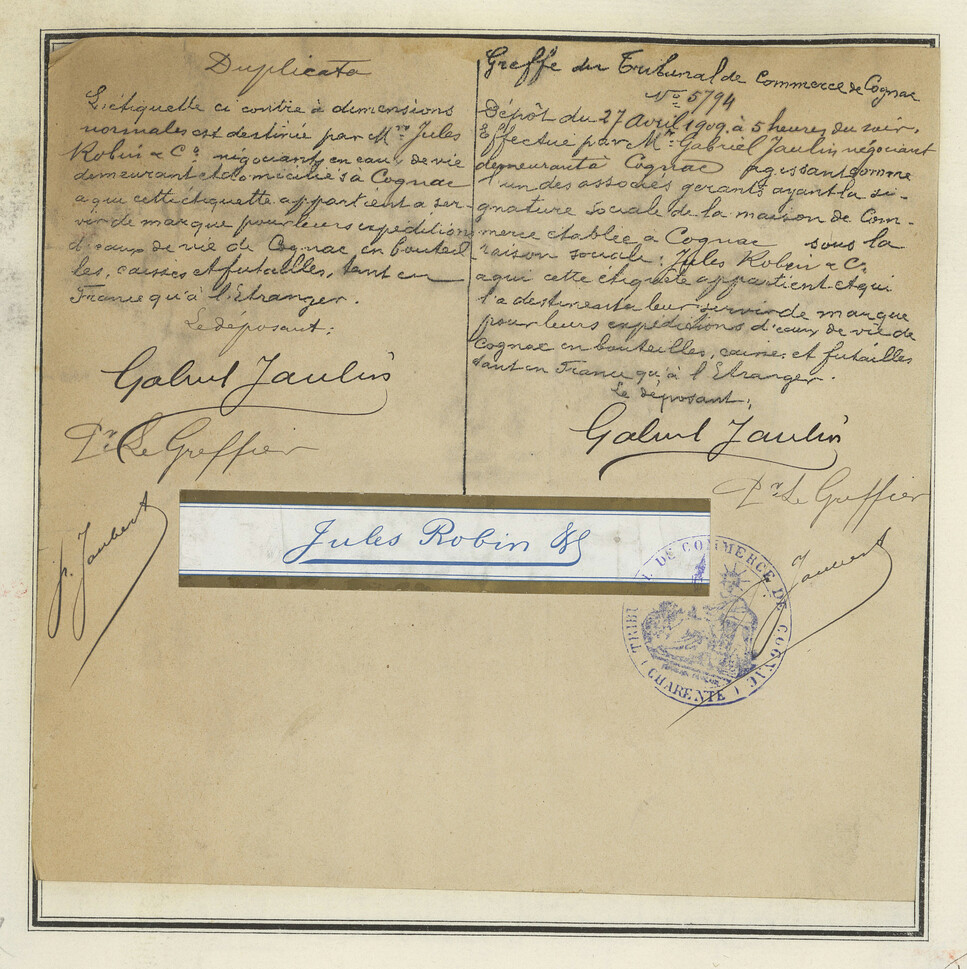 Duplicata
L'étiquette ci contre à dimensions
normales est destinée par M.rs Jules
Robin & Cº négociants en eaux de vie
demeurant et domiciliés à Cognac
a qui cette étiquette appartient a ser-
vir de marque pour leurs expéditions
d'eaux de vie de Cognac en bouteil
les, caisses et futailles, tant en
France qu'à l'Etranger.
Le déposant:
Gabriel Jaulin
Pr Le Greffier
J. Jaubert
Greffe du Tribunal de Commerce de Cognac
Nº 5794
Dépôt du 27 Avril 1909 à 5 heures du soir.
Effectué par Mr Gabriel Jaulin négociant
demeurant à Cognac agissant comme
l'un des associés gérants ayant la si-
gnature sociale de la maison de Com-
merce établee a Cognac sous la
raison sociale: Jules Robin & Cº
a qui cette étiquette appartient et qui
l'a destinent a leur servir de marque
pour leurs expéditions d'eaux de vie de
Cognac en bouteilles, caisses et futailles
tant en France qu'à l'Etranger.
Le déposant:
Gabriel Jaulin
Pr Le Greffier
Jaubert
Jules Robin & Cº
TRIBUNAL DE COMMERCE DE COGNAC
(CHARENTE)